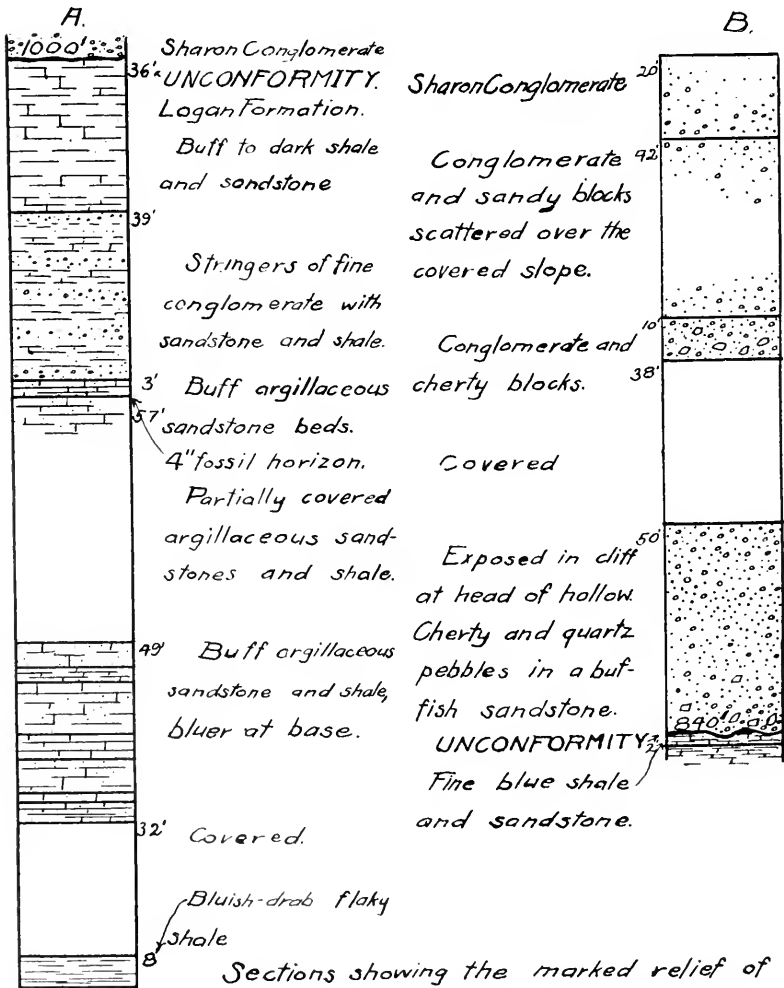 A.
1000'
Sharon Conglomerate
36'
UNCONFORMITY.
Logan Formation.
Buff to dark shale
and sandstone
39'
Stringers of fine
conglomerate with
sandstone and shale.
3'
Buff argillaceous
sandstone beds.
57'
4" fossil horizon.
Partially covered
argillaceous sand-
stones and shale.
49'
Buff argillaceous
sandstone and shale,
bluer at base.
32'
Covered.
Bluish-drab flaky
shale
8
B.
20'
Sharon Conglomerate
92'
Conglomerate
and sandy blocks
scattered over the
covered slope.
10'
Conglomerate and
cherty blocks.
38'
Covered
50'
Exposed in cliff
at head of hollow.
Cherty and quartz
pebbles in a buf-
fish sandstone.
840'
UNCONFORMITY
2'
Fine blue shale
and sandstone.
Sections showing the marked relief of